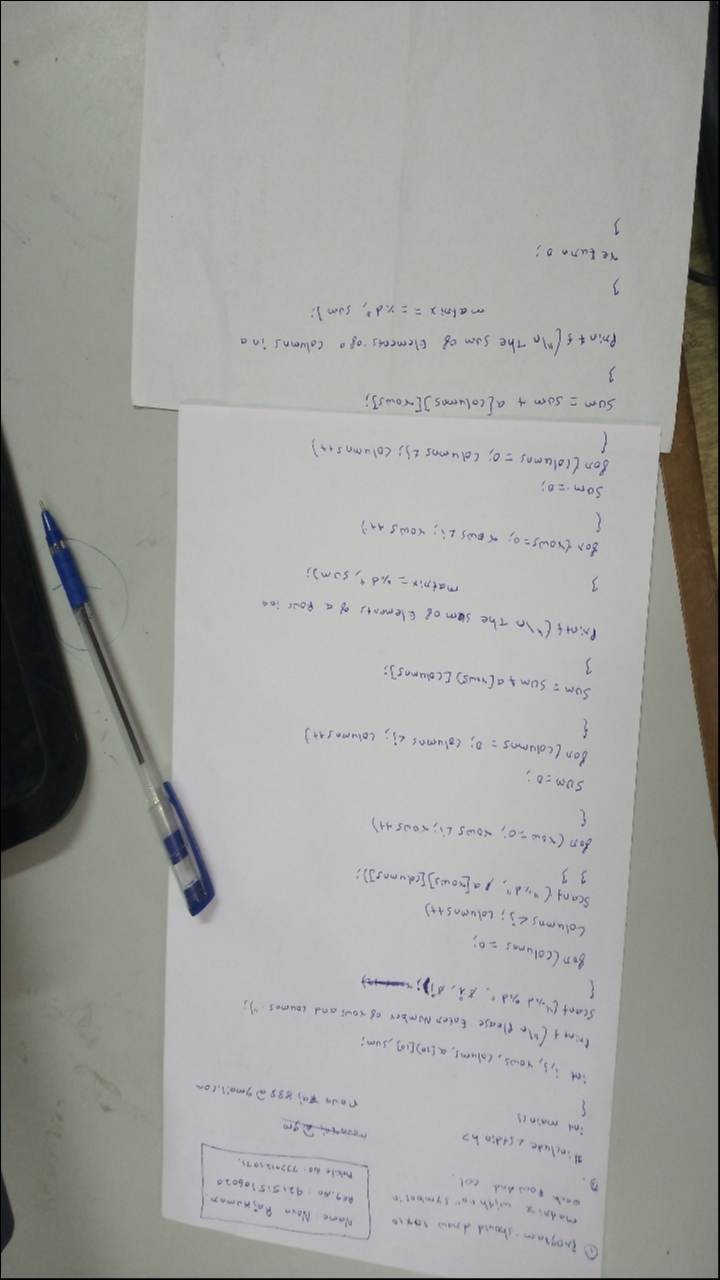 ① program should draw 10×10
matrix with "o" symbol's
each Row and col.
②.
Name: Nova Rajkumar.
Reg.No: 921515106020
Mobile No:
#include <stdio.h>
int main()
{
int i,j, rows, columns, a[10][10], sum;
Printf ("\n Please Enter Number of rows and coumns: ");
Scanf ("%d %d", &i, &j);
{
for (columns = 0;
columns < j; columns++)
Scanf ("%d", & a[rows][columns]);
} }
for (row = 0; rows < i; rows ++)
{
sum = 0;
for (columns = 0; columns < j; columns++)
{
sum = sum + a[rows][columns];
}
Printf ("\n The sum of Elements of a Rows in a
matrix = %d", sum);
}
for (rows=0; rows < i; rows++)
{
sum = 0;
for (columns = 0; columns < j; columns++)
{
sum = sum + a[columns][rows];
}
Printf ("\n The sum of Elements of a columns in a
matrix = = %d", sum);
}
return 0;
}